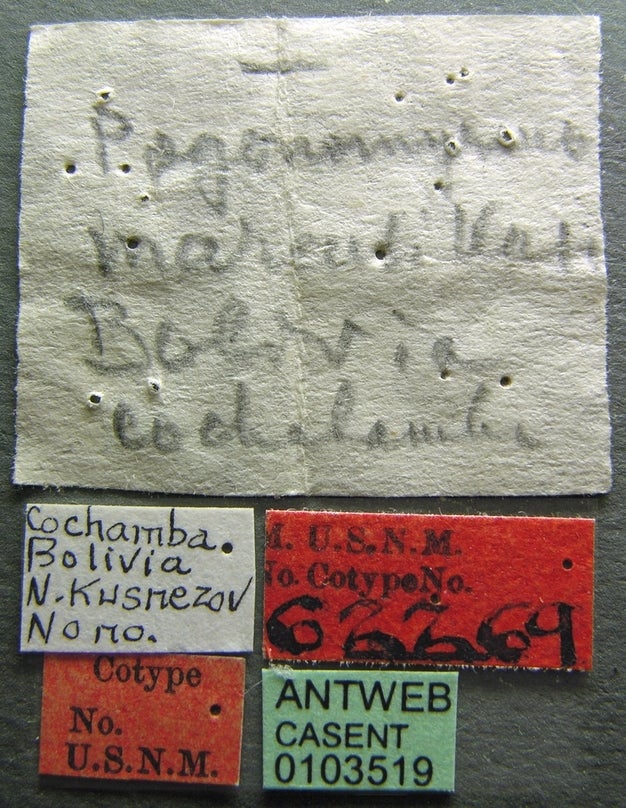 Pogonomyrmex
marcusi Kusn
Bolivia
Cochabamba
Cochamba.
Bolivia
N. Kusnezov
No no.
M. U.S.N.M.
No. CotypeNo.
62264
Cotype
No.
U.S.N.M.
ANTWEB
CASENT
0103519